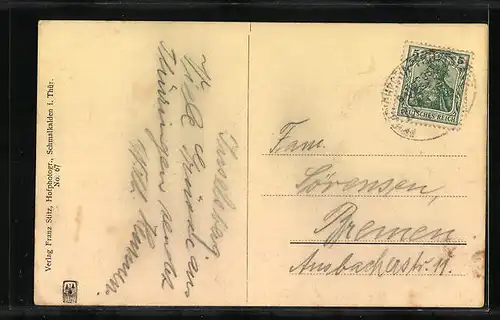 Verlag Franz Stitz, Hofphotogr., Schmalkalden i. Thür.
No. 67
Inselsberg
Viele Grüsse aus
Thüringen sendet
Willi
5 5
DEUTSCHES REICH
Fam.
Sörensen,
Bremen
Ansbacherstr. 11.